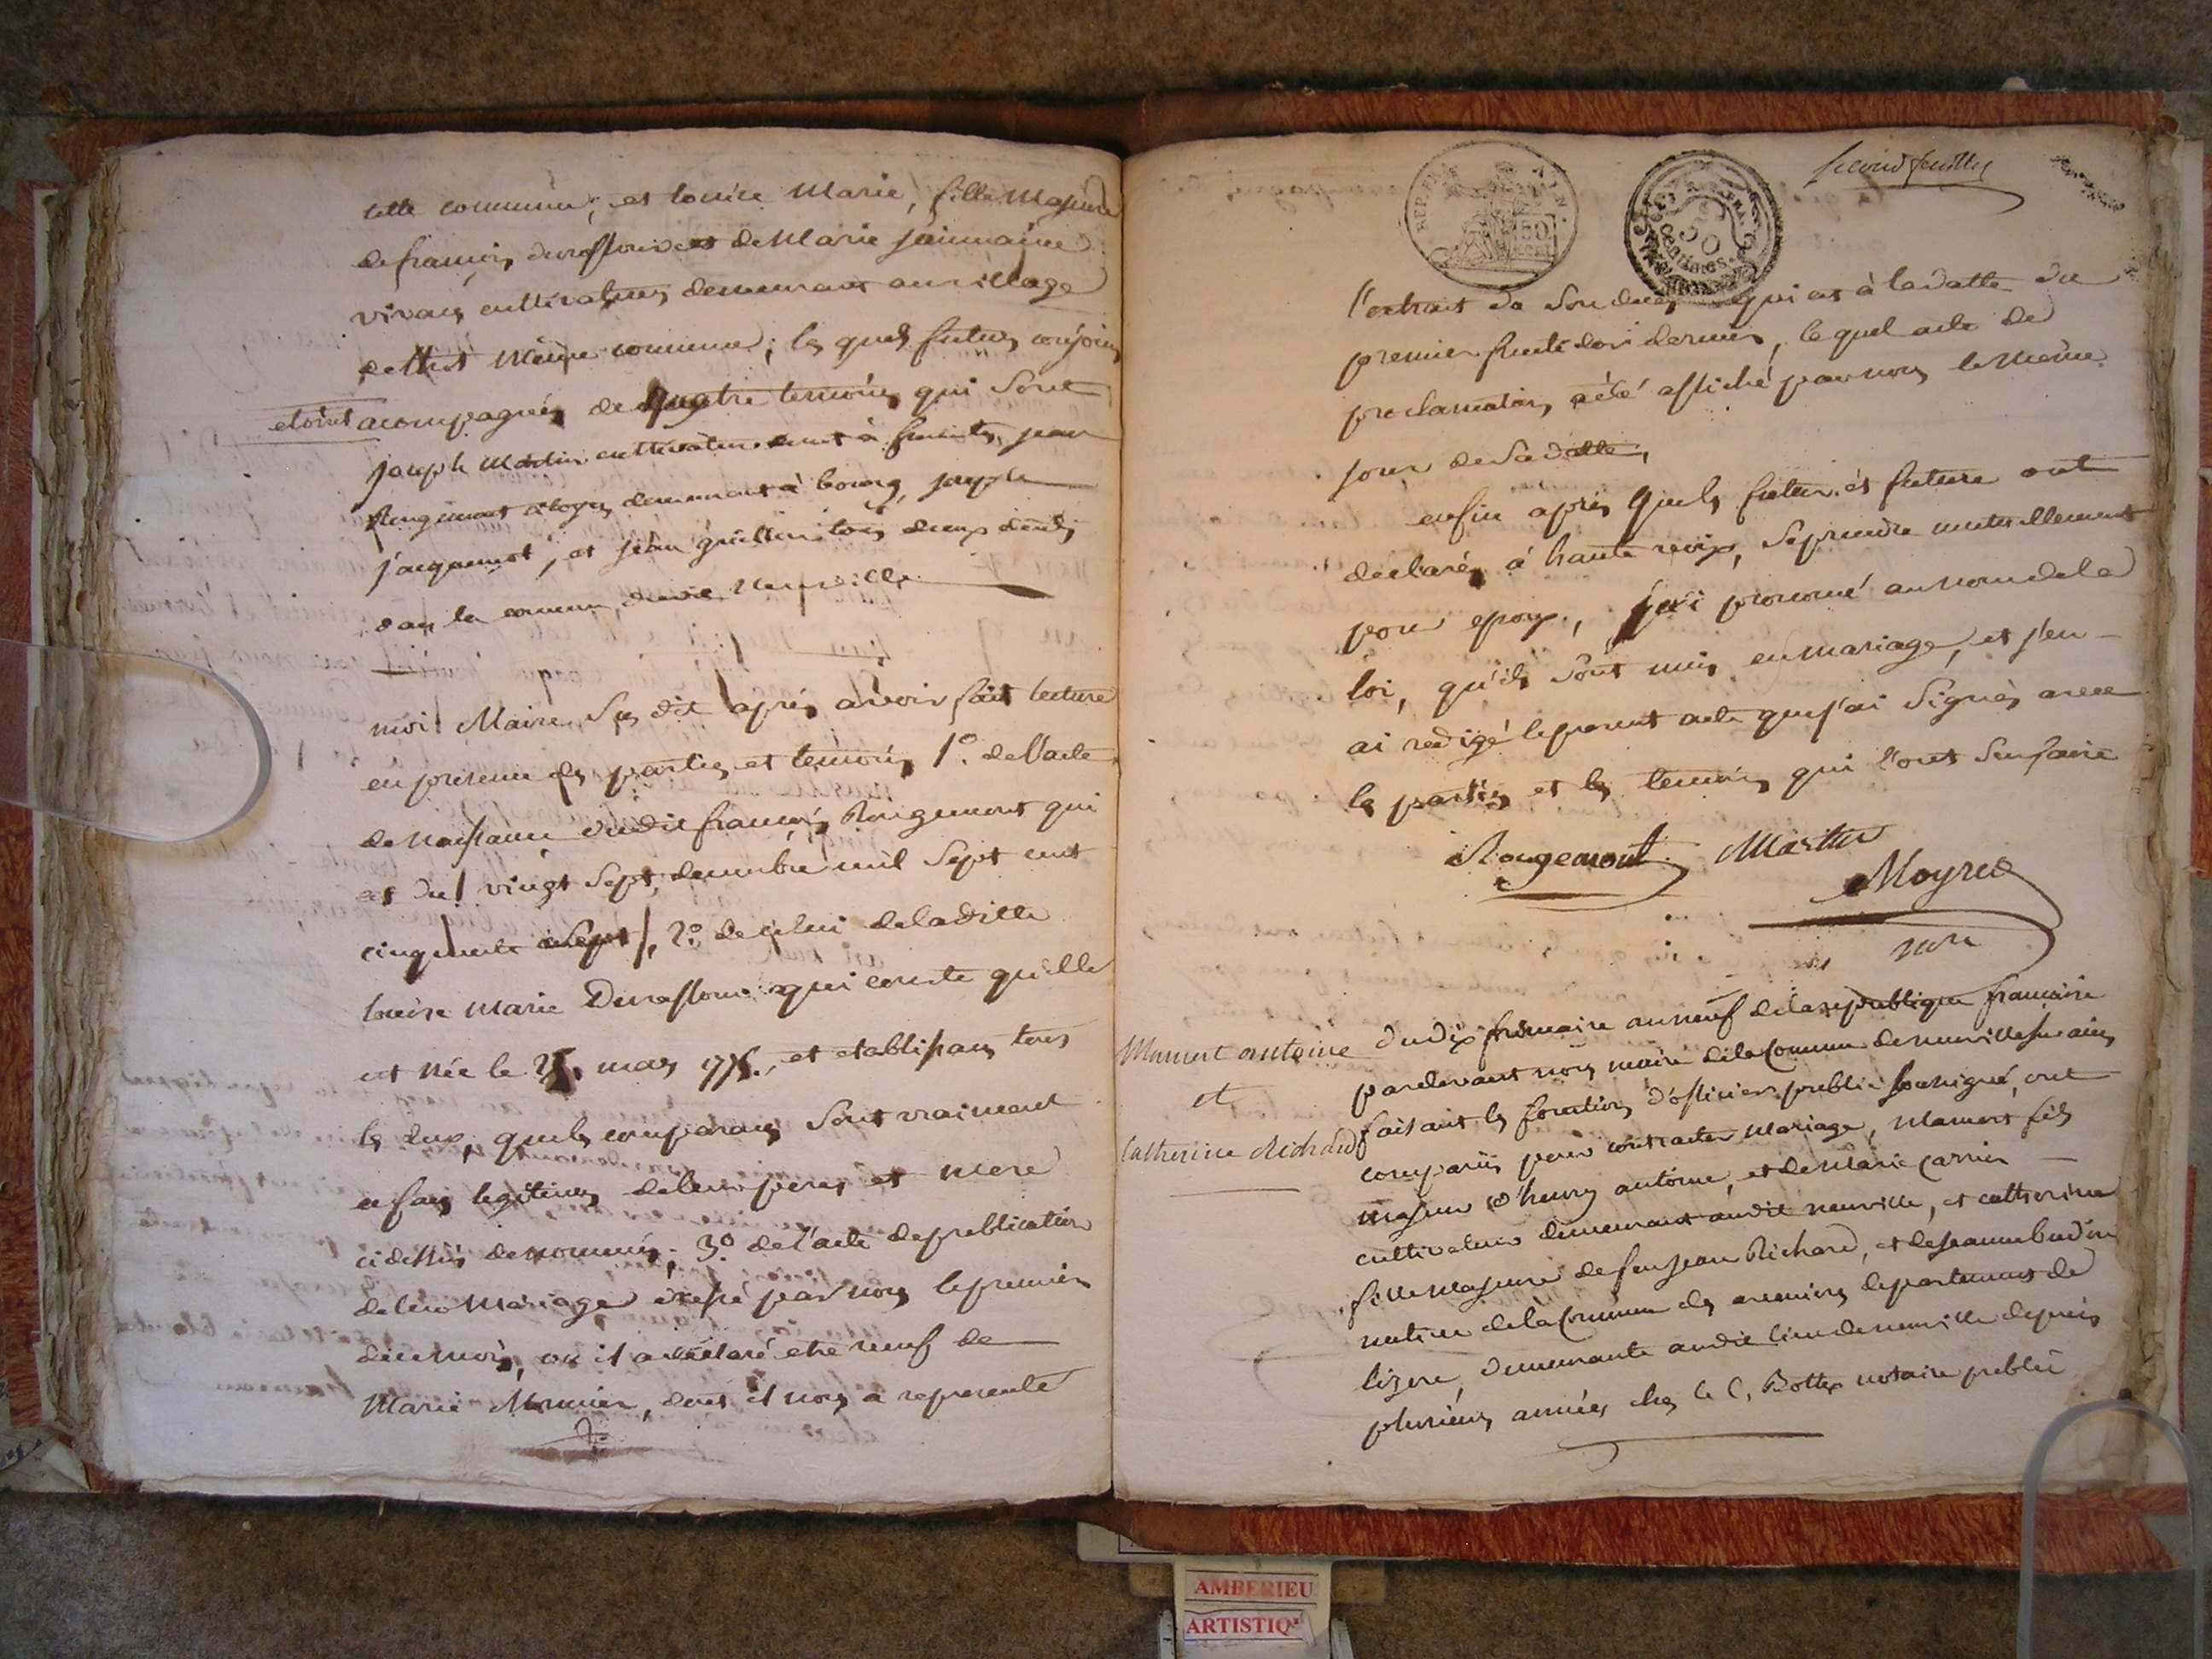 cette commune; et louise Marie, fille Majeure
de françois et de Marie
vivans cultivateurs demeurant au village
de même commune; les quels futurs conjoins
etoint acompagnés de quatre temoins qui sont
joseph Martin cultivateur jean
Rougemont demeurant à bourg, joseph
jacquemet, et jean tous deux
dans la commune dudit Neuville
moi Maire sus dit après avoir fait lecture
en presence des parties et temoins 1°. de l'acte
de naissance dudit françois Rougemont qui
est du vingt sept decembre mil sept cent
cinquante sept, 2°. de celui de laditte
louise Marie qui conste quelle
est née le mars et etablissans tous
les deux, que les comparans sont vraiment
enfans legitimes de leurs peres et mere
ci dessus denommés; 3°. de l'acte de publication
de leur Mariage dressé par nous le premier
du mois, où il a declaré etre veuf de
Marie Monnier, dont il nous a representé
second feuillet
REP. FRA.
50
50
Centimes
l'extrait de son deces qui est à la datte du
premier fructidor dernier, le quel acte de
proclamation a été affiché par nous le même
jour de sa datte,
enfin après que les futur et future ont
declarés à haute voix, se prendre mutuellement
pour epoux, j'ai prononcé au nom de la
loi, qu'ils sont unis en mariage, et j'en
ai redigé le present acte que j'ai signés avec
les parties et les temoins qui l'ont seu faire
Rougemont Martin
Moyret
Mamert antoine
et
Catherine Richard
du dix frimaire an neuf de la republique francaise
pardevant nous maire de la Commune de neuville sur ains
faisant les fonctions d'officier public soussigné, ont
comparüs pour contracter mariage, Mamert fils
majeur d'henry antoine, et de Marie Carrier
cultivateur demeurant audit neuville, et catherine
fille majeure de feu jean Richard, et de jeanne budin
native de la Commune des avenieres departement de
lizere, demeurante audit lieu de neuville depuis
plusieurs années chez le C. Bottex notaire public
AMBERIEU
ARTISTIQ